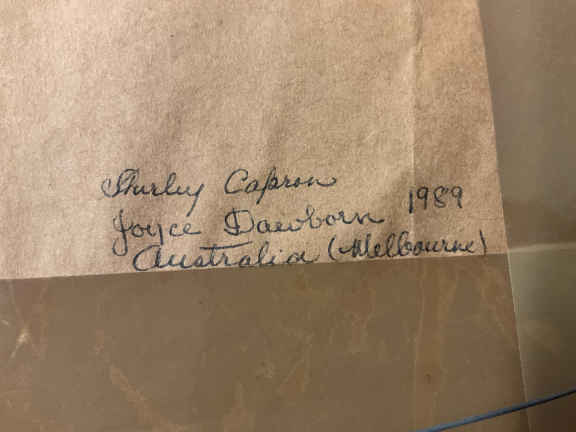 Shirley Capron
Joyce Dawborn 1989
Australia (Melbourne)